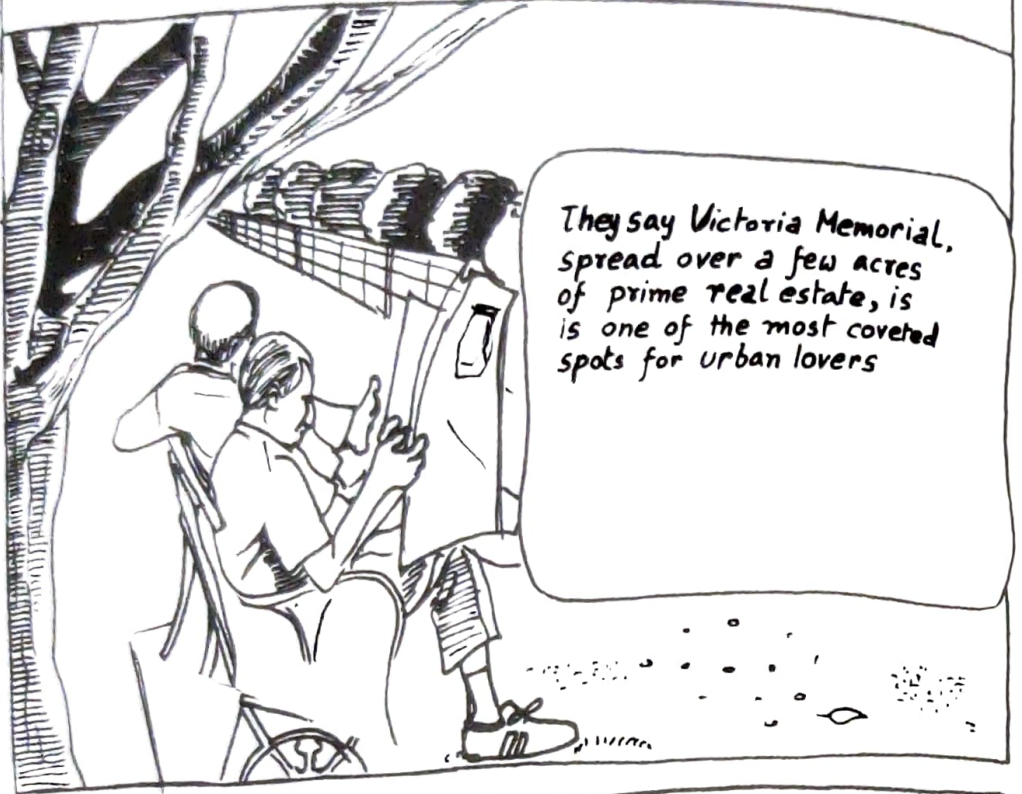 They say Victoria Memorial,
spread over a few acres
of prime real estate, is
is one of the most coveted
spots for urban lovers